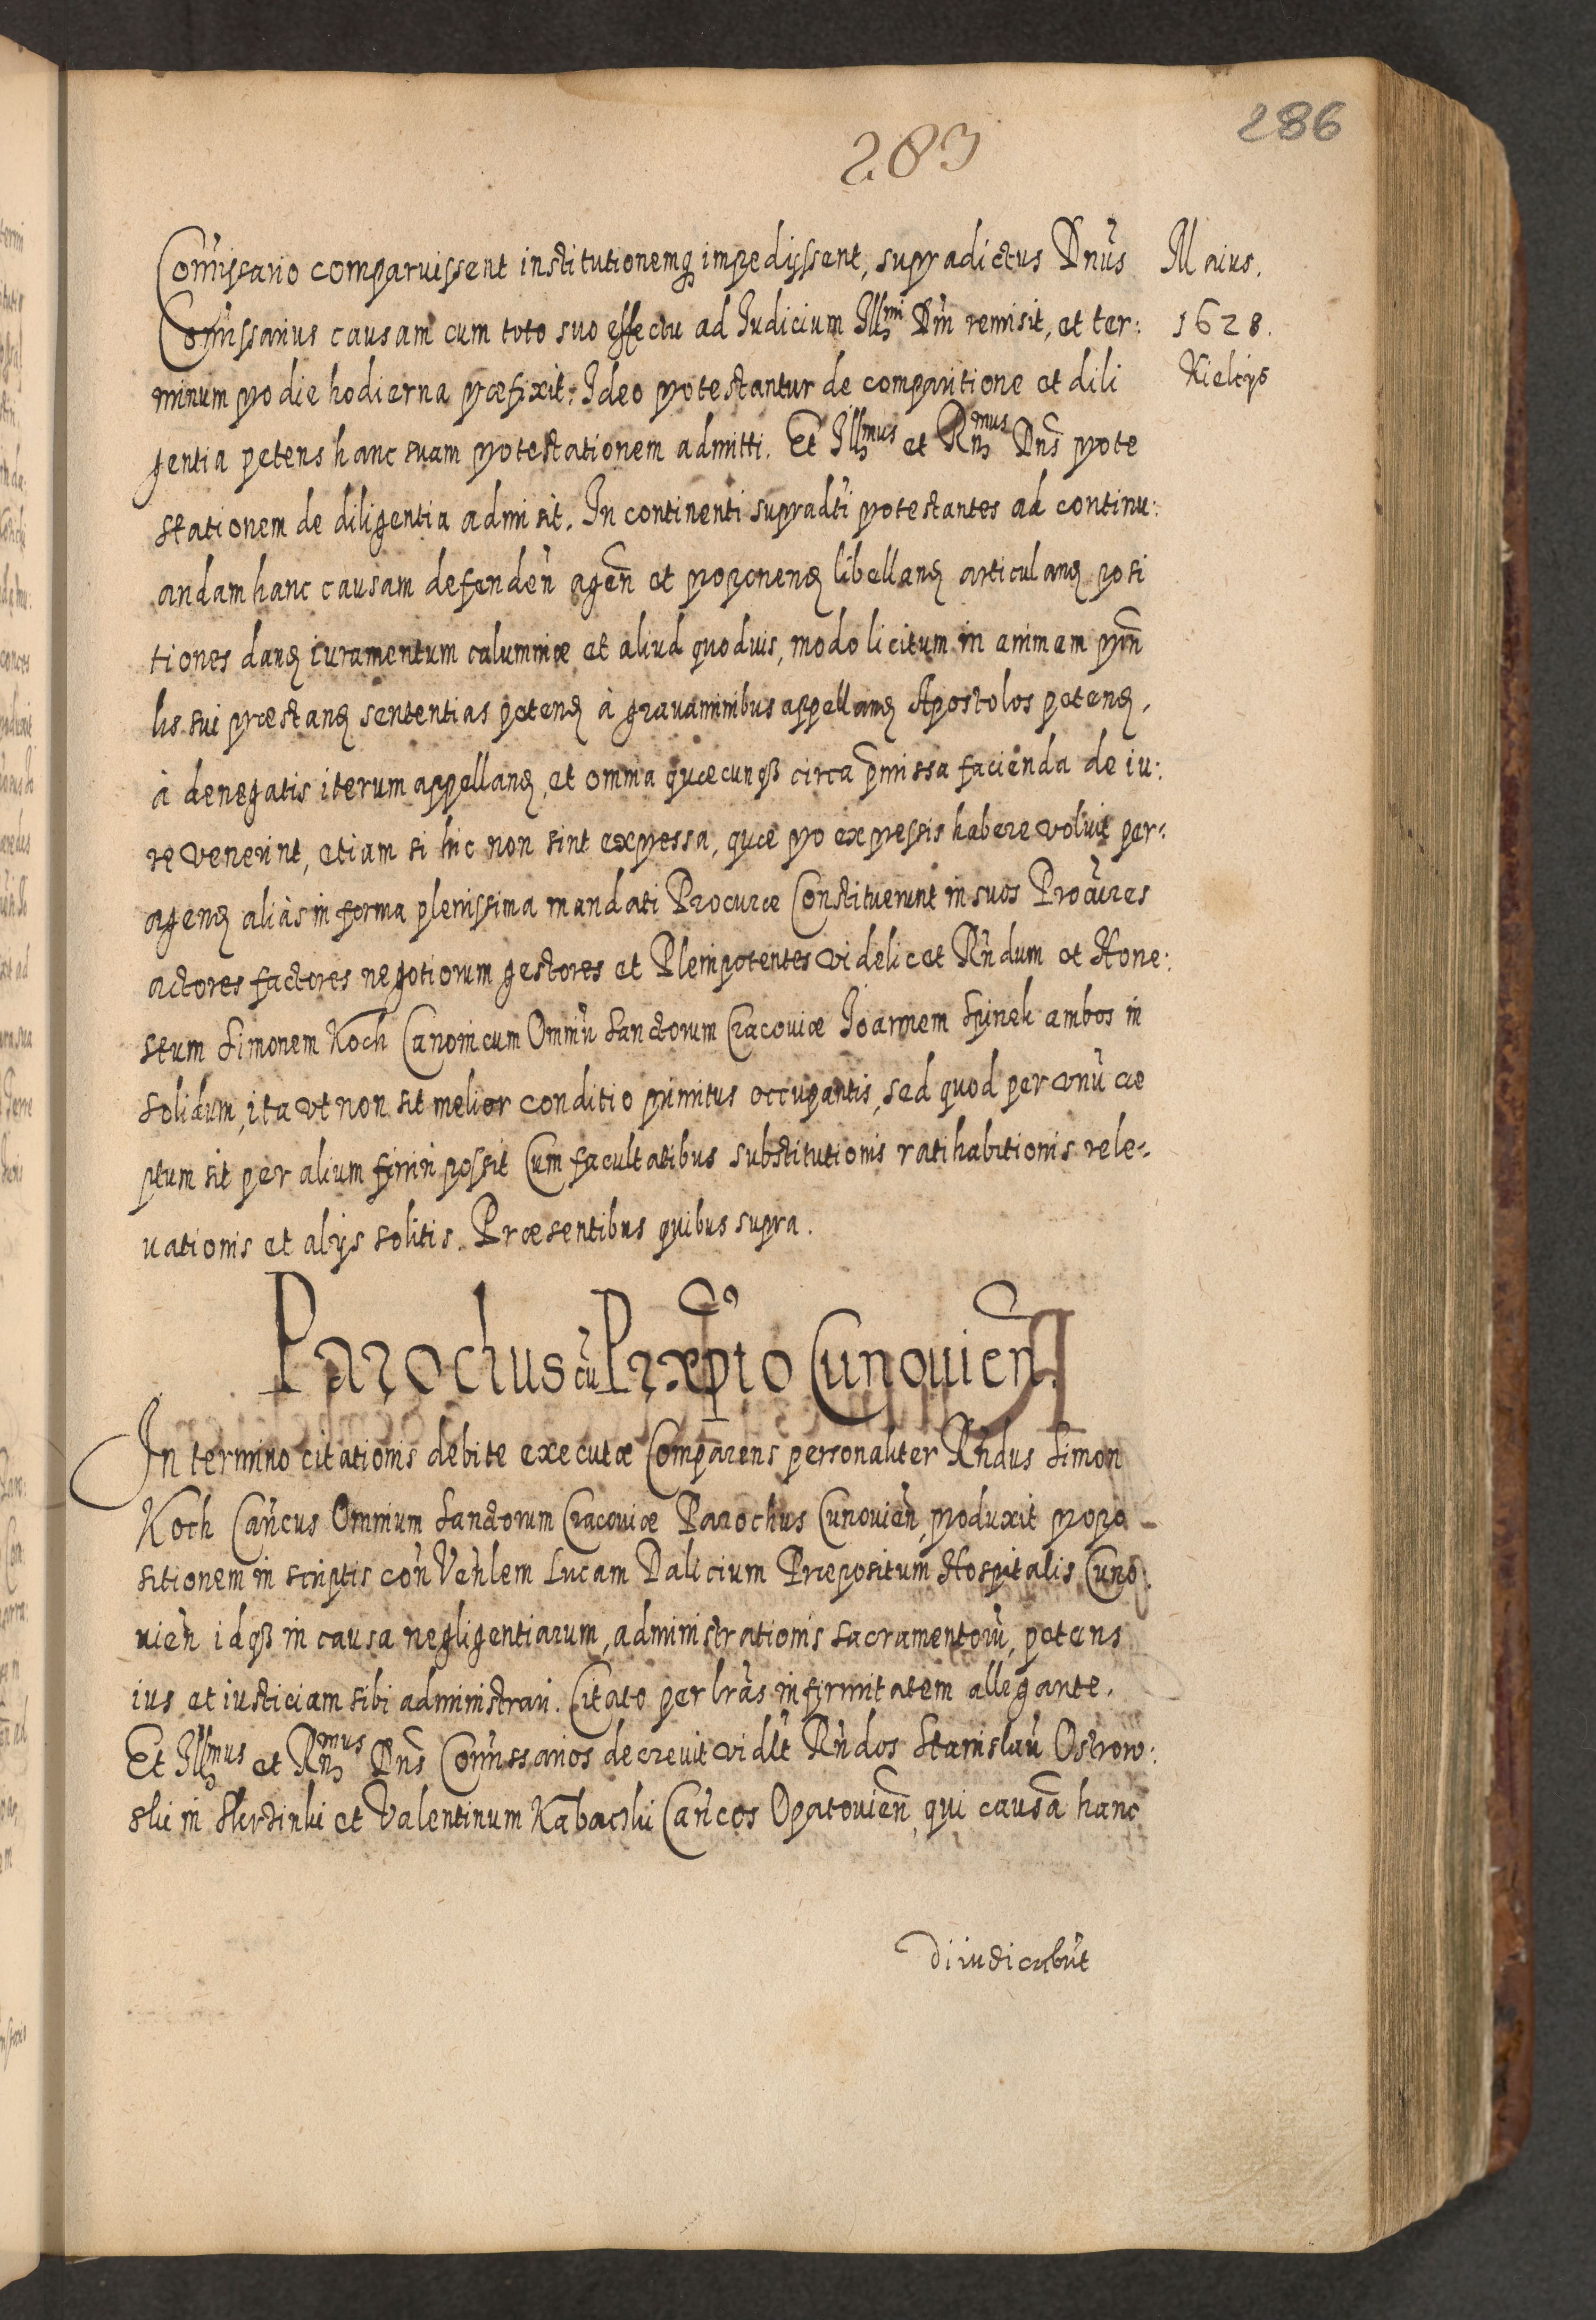 286
283
Com̃issario comparuissent institutionemq́ impedijssent, supradictus Dnũs
Maius.
Com̃issarius causam cum toto suo effectu ad Iudicium Illmi Dñi remisit, et ter:
1628.
minum pro die hodierna præfixit. Ideo protestantur de comparitione et dili
Kielcijs
gentia petens hanc suam protestationem admitti. Et Illmus et Rnmus Dñs prote
stationem de diligentia admisit. In continenti supradti protestantes ad continu:
andam hanc causam defendeñ ageñ et proponenꝗ libellanꝗ articulanꝗ posi
tiones danꝗ iuramentum calumniæ et aliud quoduis, modo licitum in animam prin̄
lis sui præstanꝗ sententias petenꝗ à grauaminibus appellanꝗ Apostolos petenꝗ,
à denegatis iterum appellanꝗ, et omnia quæcunqꝫ circa p̃missa facienda de iu:
re venerint, etiam si hic non sint expressa, quæ pro expressis habere voluit per:
agenꝗ aliàs in forma plenissima mandati Procuræ Constituerunt in suos Procũres
actores factores negotiorum gestores et Plenipotentes videlicet Rñdum et Hone:
stum Simonem Koch Canonicum Omniũ Sanctorum Cracouiæ Joannem Spinek ambos in
solidum, ita vt non sit melior conditio primitus occupantis, sed quod per vnũ cæ
ptum sit per alium finiri possit Cum facultatibus substitutionis ratihabitionis rele:
uationis et alijs solitis. Præsentibus quibus supra.
Parochus cũ Præpto Cunouien̄.
In termino citationis debite executæ Comparens personaliter Rñdus Simon
Koch Cañcus Omnium Sanctorum Cracouiæ Parochus Cunouień produxit propo
sitionem in scriptis coñ Veñlem Lucam Dalicium Præpositum Hospitalis Cuno
uień idqꝫ in causa negligentiarum, administrationis sacramentorũ, petens
ius et iusticiam sibi administrari. Citato per lras infirmitatem allegante.
Et Illmus et Rnmus Dñs Com̃issarios decreuit vidlt Rñdos Stanislaũ Ostrow:
ski in et Valentinum Kabacki Cañcos Opatouień, qui causam̃ hanc
diiudicabũt